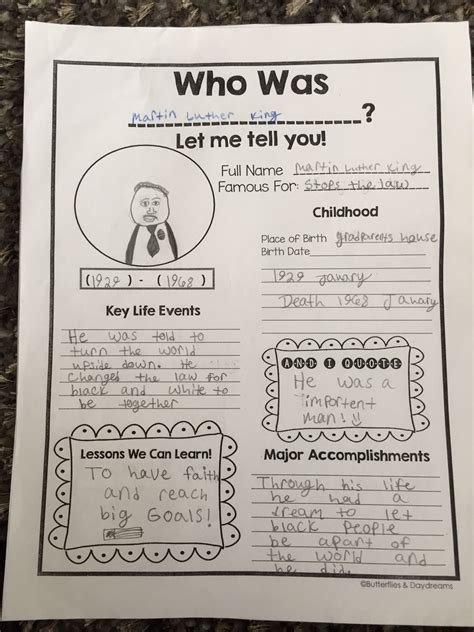 Who Was
Martin Luther King ?
Let me tell you!
Full Name Martin Luther King
Famous For: Stops the law
Childhood
Place of Birth gradparents house
Birth Date
1929 Janary
Death 1968 Janary
(1929) - (1968)
Key Life Events
He was told to
turn the world
upside down. He
changes the law for
black and white to
be together
AND I QUOTE
He was a
importent
man!
Lessons We Can Learn!
To have faith
and reach
big GOALS!
Major Accomplishments
Through his life
he had a
dream to let
black People
be apart of
the world and
he did.
©Butterflies & Daydreams